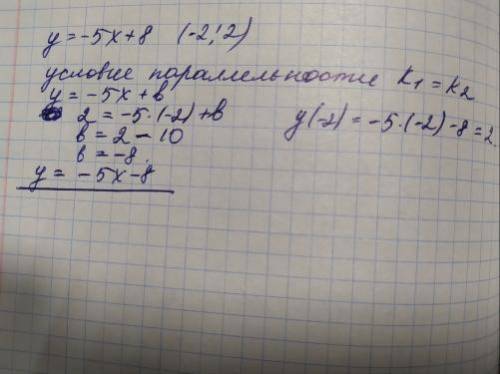 y = -5x+8 (-2; 2)
условие параллельности k₁ = k₂
y = -5x + b
2 = -5·(-2)+b
b = 2 - 10
b = -8.
y = -5x - 8
y(-2) = -5·(-2) - 8 = 2.